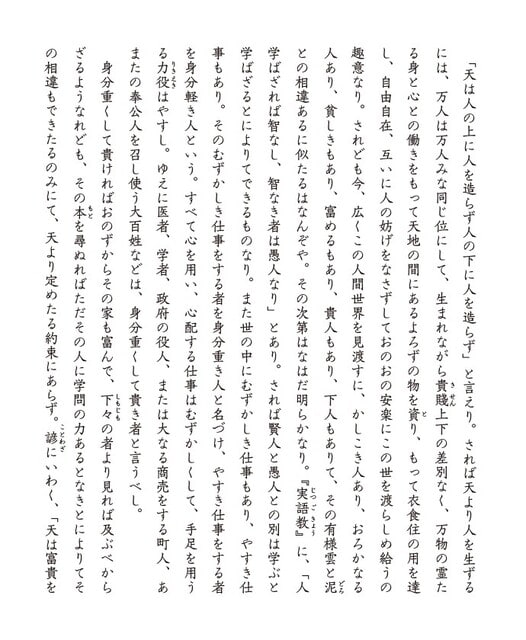 「天は人の上に人を造らず人の下に人を造らず」と言えり。されば天より人を生ずる
には、万人は万人みな同じ位にして、生まれながら貴賤上下の差別なく、万物の霊た
る身と心との働きをもって天地の間にあるよろずの物を資り、もって衣食住の用を達
し、自由自在、互いに人の妨げをなさずしておのおの安楽にこの世を渡らしめ給うの
趣意なり。されども今、広くこの人間世界を見渡すに、かしこき人あり、おろかなる
人あり、貧しきもあり、富めるもあり、貴人もあり、下人もありて、その有様雲と泥
との相違あるに似たるはなんぞや。その次第はなはだ明らかなり。『実語教』に、「人
学ばざれば智なし、智なき者は愚人なり」とあり。されば賢人と愚人との別は学ぶと
学ばざるとによりてできるものなり。また世の中にむずかしき仕事もあり、やすき仕
事もあり。そのむずかしき仕事をする者を身分重き人と名づけ、やすき仕事をする者
を身分軽き人という。すべて心を用い、心配する仕事はむずかしくして、手足を用う
る力役はやすし。ゆえに医者、学者、政府の役人、または大なる商売をする町人、あ
またの奉公人を召し使う大百姓などは、身分重くして貴き者と言うべし。
身分重くして貴ければおのずからその家も富んで、下々の者より見れば及ぶべから
ざるようなれども、その本を尋ぬればただその人に学問の力あるとなきとによりてそ
の相違もできたるのみにて、天より定めたる約束にあらず。諺にいわく、「天は富貴を